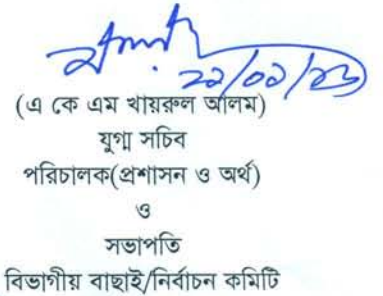 (এ কে এম খায়রুল আলম)
যুগ্ম সচিব
পরিচালক(প্রশাসন ও অর্থ)
ও
সভাপতি
বিভাগীয় বাছাই/নির্বাচন কমিটি